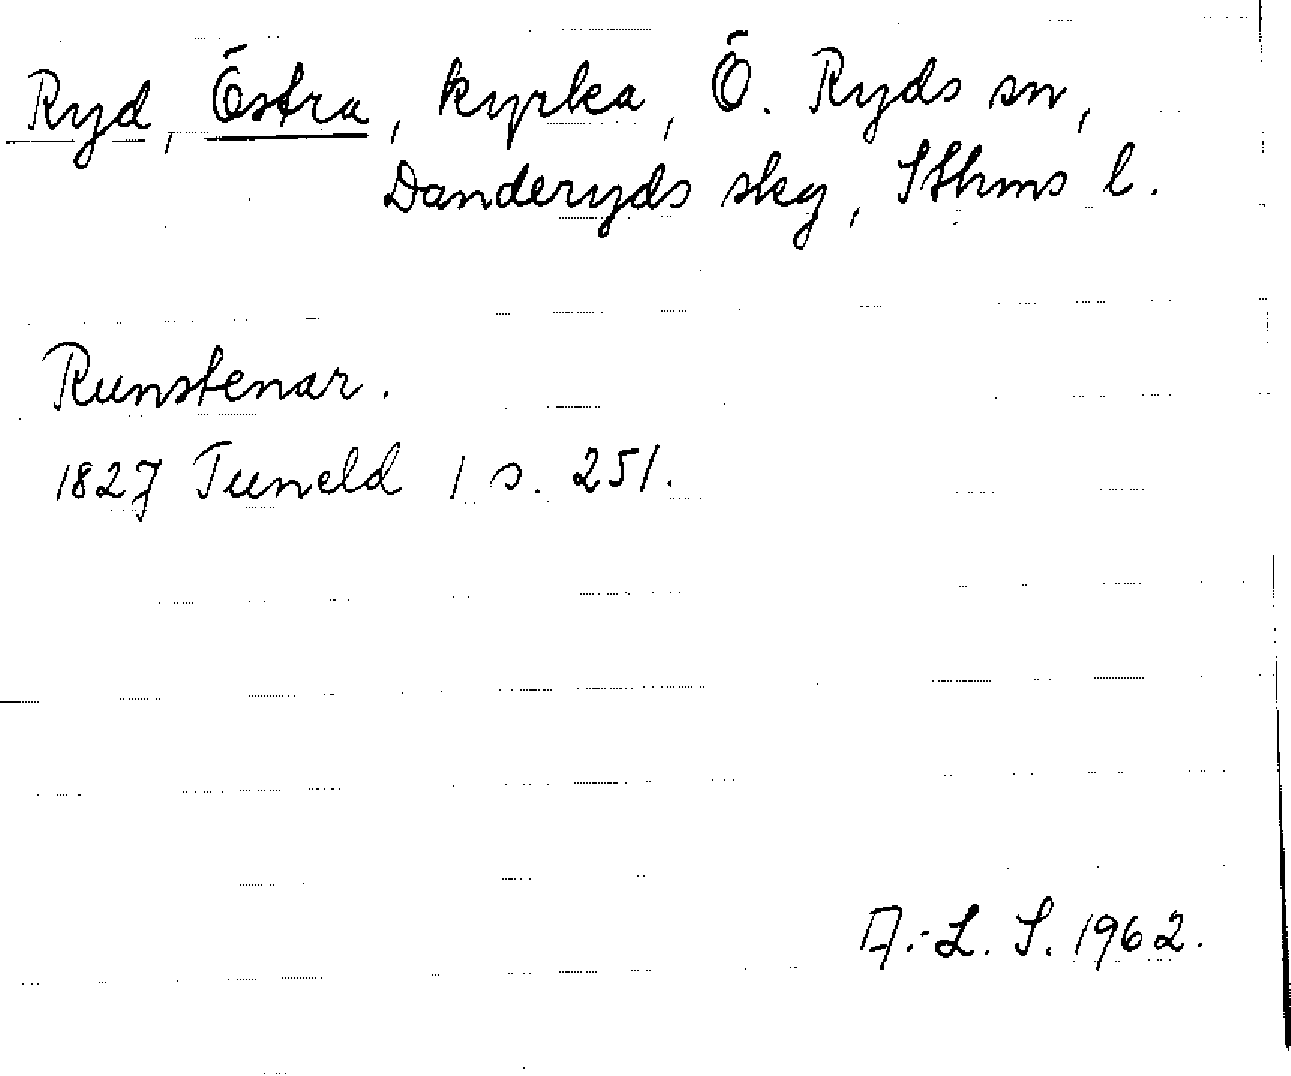 Ryd, Östra, kyrka, Ö. Ryds sn,
Danderyds skg, Sthms l.
Runstenar.
1827 Tuneld 1 s. 251.
A.-L. S. 1962.